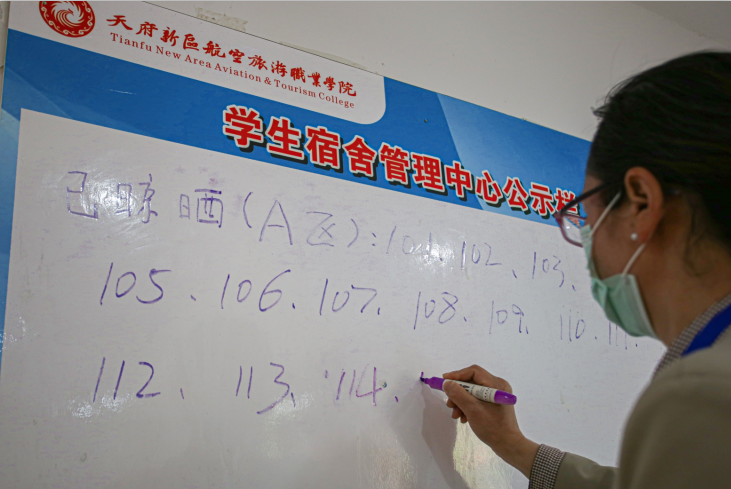 天府新區航空旅游職業學院
Tianfu New Area Aviation & Tourism College
学生宿舍管理中心公示栏
已晾晒(A区):101、102、103、
105、106、107、108、109、110、111、
112、113、114、